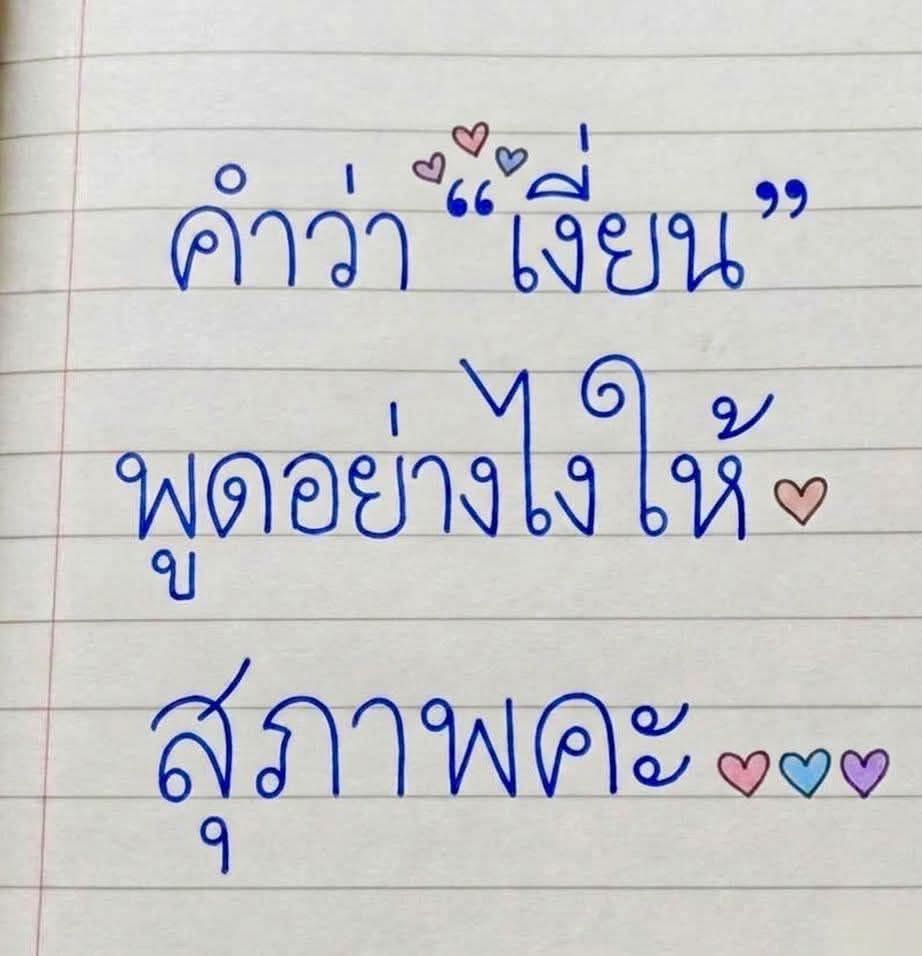 คำว่า “เงี่ยน”
พูดอย่างไงให้
สุภาพคะ